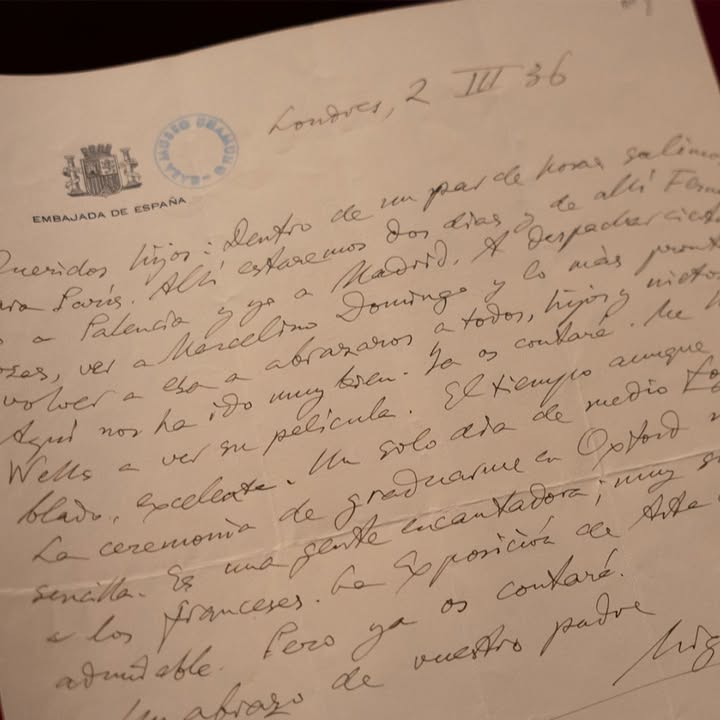 Londres, 2 III 36
CASA MUSEO UNAMUNO
EMBAJADA DE ESPAÑA
Queridos hijos: Dentro de un par de horas salimos
para París. Allí estaremos dos días y de allí
a Palencia y yo a Madrid. A despachar
cosas, ver a Marcelino Domingo y lo más pronto
volver a esa a abrazaros a todos, hijos y nietos
Aquí nos ha ido muy bien. Ya os contaré. Me
Wells a ver su película. El tiempo aunque
blado, excelente. Un solo día de medio
La ceremonia de graduarme en Oxford
sencilla. Es una gente encantadora; muy
a los franceses. La Exposición de Arte
admirable. Pero ya os contaré.
Un abrazo de vuestro padre
Mig